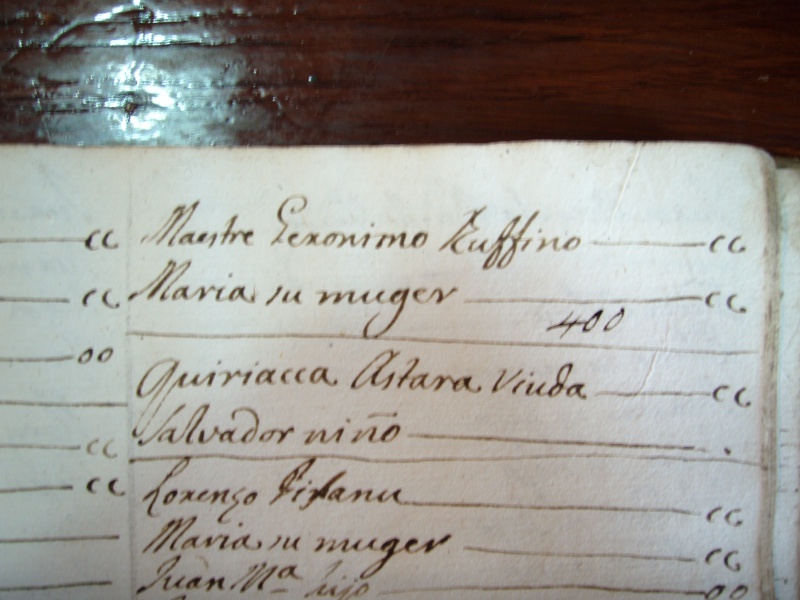 cc Maestre Geronimo Ruffino cc
cc Maria su muger cc
400
oo
Quiriacca Astara viuda cc
cc Salvador niño .
cc Lorenzo cc
Maria su muger cc
Juan Mª hijo oo